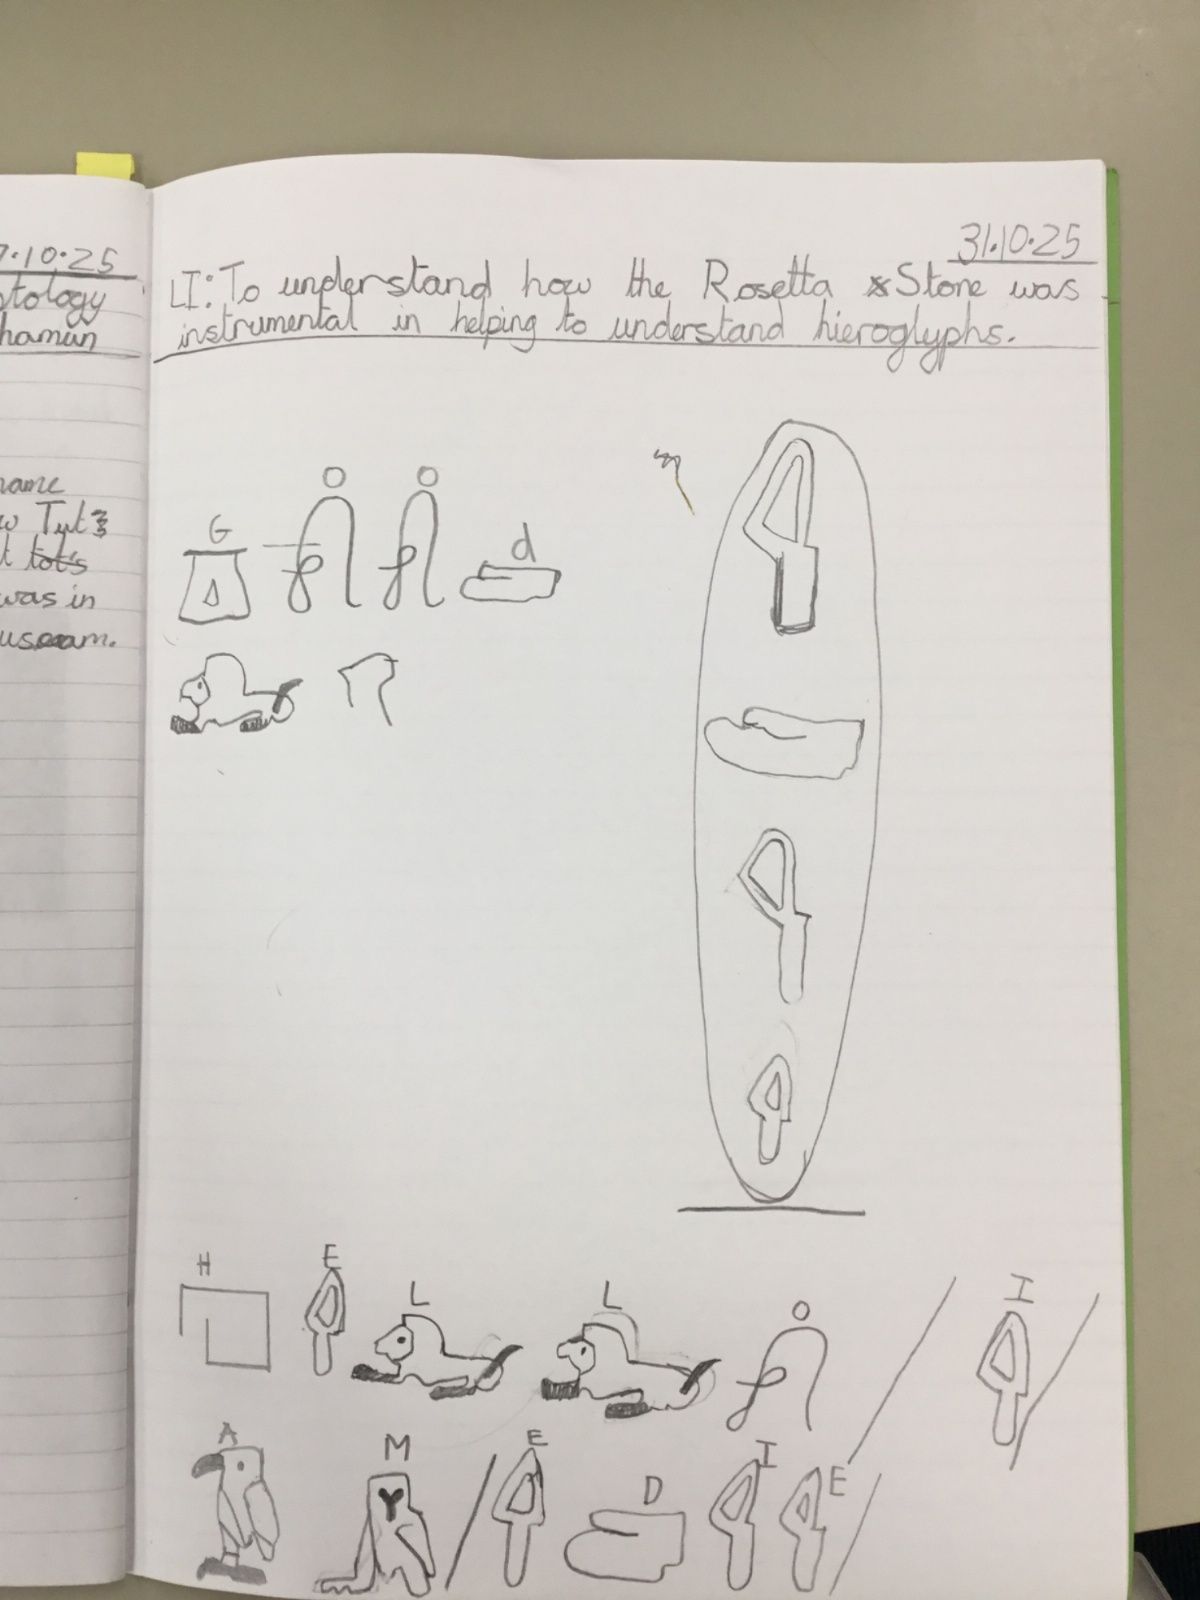 7.10.25
tology
hamun
name
w Tut
t tot's
was in
31.10.25
LI: To understand how the Rosetta Stone was
instrumental in helping to understand hieroglyphs.
G O O d
H E L L O I
A M E D I E